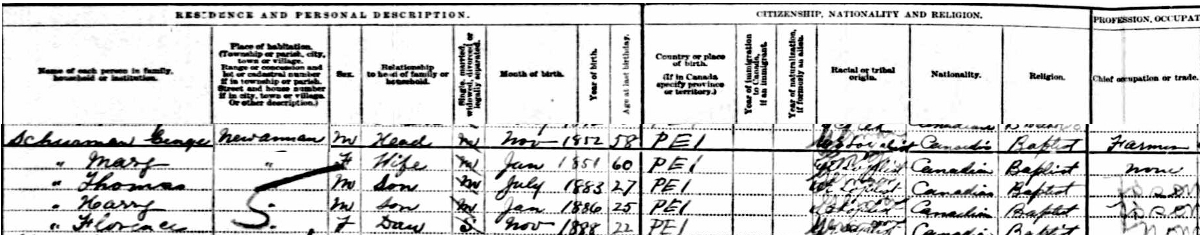 RESIDENCE AND PERSONAL DESCRIPTION.
CITIZENSHIP, NATIONALITY AND RELIGION.
PROFESSION, OCCUPAT
Name of each person in family, household or institution.
Place of habitation. (Township or parish, city, town or village. Range or concession and lot or cadastral number if in township or parish. Street and house number if in city, town or village. Or other description.)
Sex.
Relationship to head of family or household.
Single, married, widowed, divorced or legally separated.
Month of birth.
Year of birth.
Age at last birthday.
Country or place of birth. (If in Canada specify province or territory.)
Year of immigration to Canada, if an immigrant.
Year of naturalization, if formerly an alien.
Racial or tribal origin.
Nationality.
Religion.
Chief occupation or trade.
Schurman George Newannan M Head M Nov 1852 58 PEI Canadian Baptist Farmer
" Mary " F Wife M Jan 1851 60 PEI Canadian Baptist none
" Thomas M Son July 1883 27 PEI Canadian Baptist
" Harry " M Son Jan 1886 25 PEI Canadian Baptist
" Florence " F Dau S Nov 1888 22 PEI Canadian Baptist